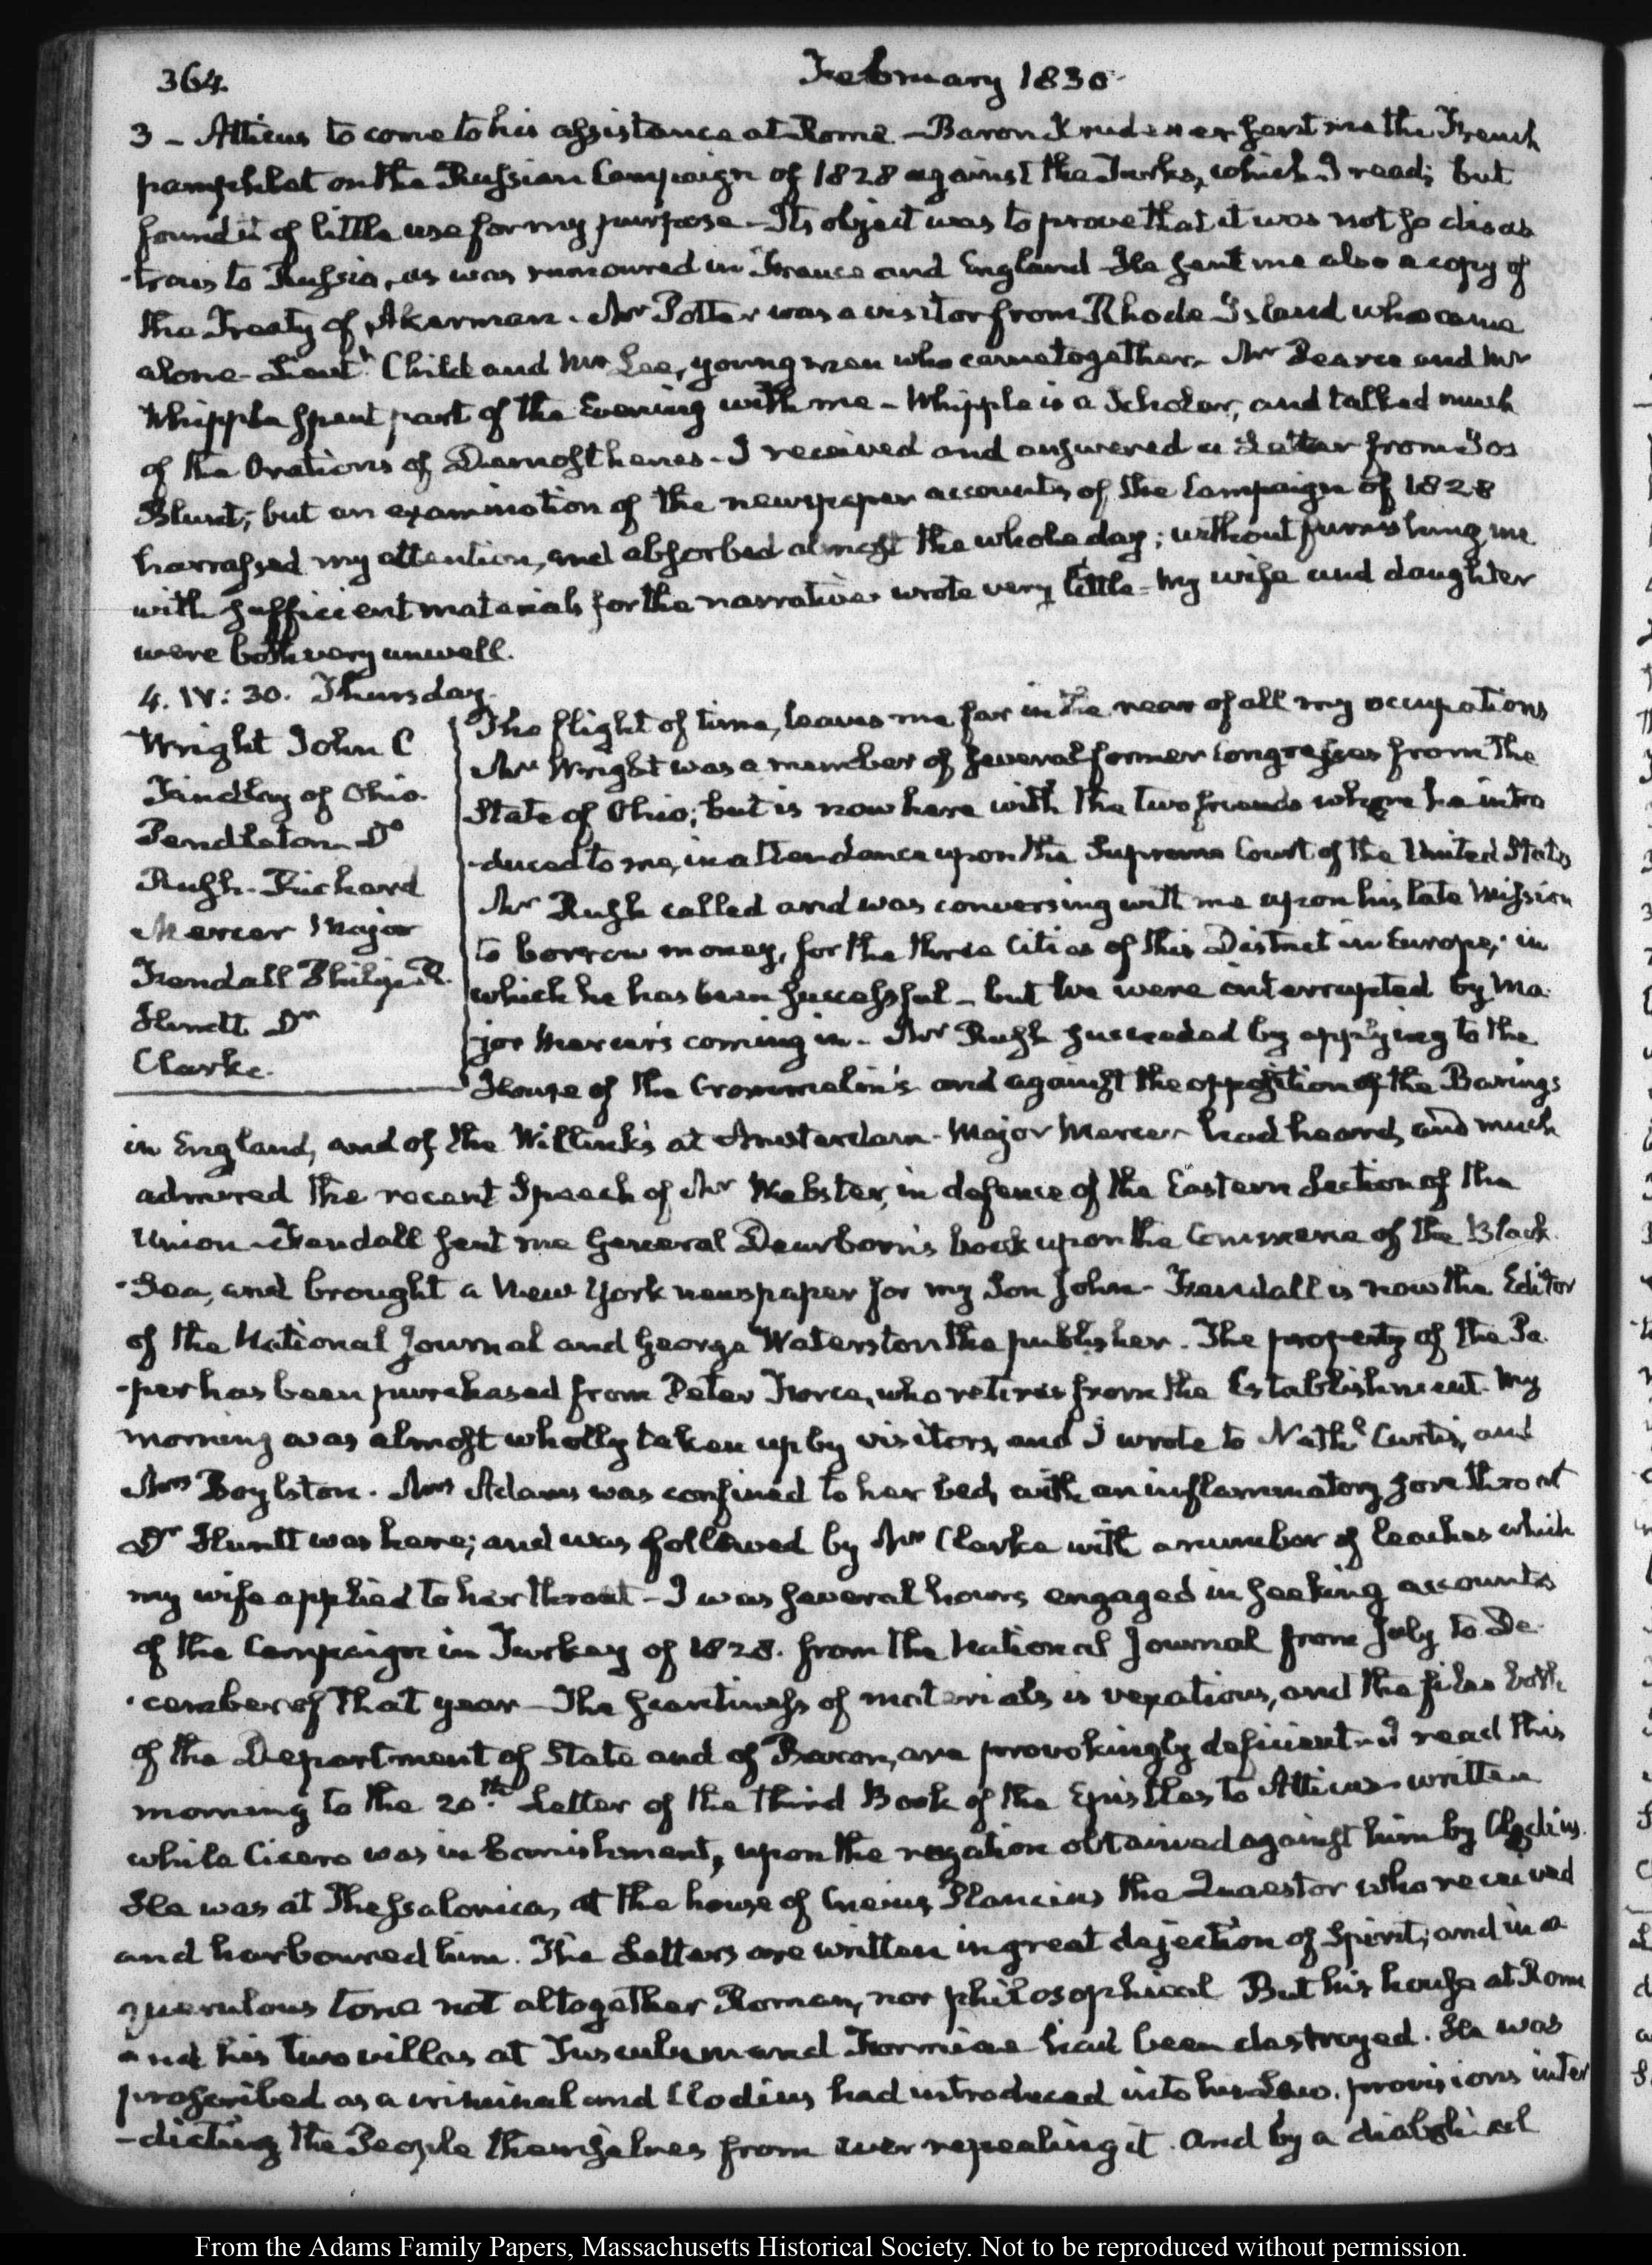 364.
February 1830.
3 – Atticus to come to his assistance at Rome – Baron Krudener sent me the French
pamphlet on the Russian Campaign of 1828 against the Turks, which I read; but
found it of little use for my purpose – Its object was to prove that it was not so disas
-trous to Russia, as was rumoured in France and England – He sent me also a copy of
the Treaty of Akerman. Mr Potter was a visitor from Rhode Island who came
alone – Lieut. Child and Mr Lee, young men who came together. Mr Pearce and Mr
Whipple spent part of the Evening with me – Whipple is a Scholar, and talked much
of the Orations of Demosthenes – I received and answered a Letter from Jos
Blunt; but an examination of the newspaper accounts of the Campaign of 1828
harrassed my attention, and absorbed almost the whole day; without furnishing me
with sufficient materials for the narrative. wrote very little – My wife and daughter
were both very unwell.
4. IV: 30. Thursday.
Wright John C
Findlay of Ohio.
Pendleton Do
Rush. Richard
Mercer Major
Fendall Philip R.
Huntt Dr
Clarke.
The flight of time, leaves me far in the rear of all my occupations
Mr Wright was a member of several former Congresses from the
State of Ohio; but is now here with the two friends whom he intro
-duced to me, in attendance upon the Supreme Court of the United States
Mr Rush called and was conversing with me upon his late Mission
to borrow money, for the three Cities of this District in Europe; in
which he has been successful – but we were interrupted by Ma
jor Mercer's coming in – Mr Rush succeeded by applying to the
House of the Crommelin's and against the opposition of the Barings
in England, and of the Willink's at Amsterdam – Major Mercer had heard, and much
admired the recent Speech of Mr Webster, in defence of the Eastern Section of the
Union – Fendall sent me General Dearborn's book upon the Commerce of the Black
-Sea, and brought a New York newspaper for my Son John – Fendall is now the Editor
of the National Journal and George Waterston the publisher. The property of the Pa
-per has been purchased from Peter Force, who retires from the Establishment. My
morning was almost wholly taken up by visitors, and I wrote to Nathl Curtis, and
Mrs Boylston. Mrs Adams was confined to her bed, with an inflammatory sore throat
Dr Huntt was here; and was followed by Mrs Clarke with a number of leaches which
my wife applied to her throat – I was several hours engaged in seeking accounts
of the Campaign in Turkey of 1828. from the National Journal from July to De
-cember of that year – The scantiness of materials is vexatious, and the files both
of the Department of State and of Bacon, are provokingly deficient – I read this
morning to the 20th Letter of the third Book of the Epistles to Atticus – written
while Cicero was in banishment, upon the rogation obtained against him by Clodius.
He was at Thessalonica, at the house of Cneius Plancius the Quaestor who received
and harboured him. The Letters are written in great dejection of Spirit; and in a
querulous tone not altogether Roman, nor philosophical But his house at Rome
and his two villas at Tusculum and Formiae had been destroyed. He was
proscribed as a criminal and Clodius had introduced into his Law. provisions inter
-dicting the People themselves from ever repealing it. And by a diabolical
From the Adams Family Papers, Massachusetts Historical Society. Not to be reproduced without permission.